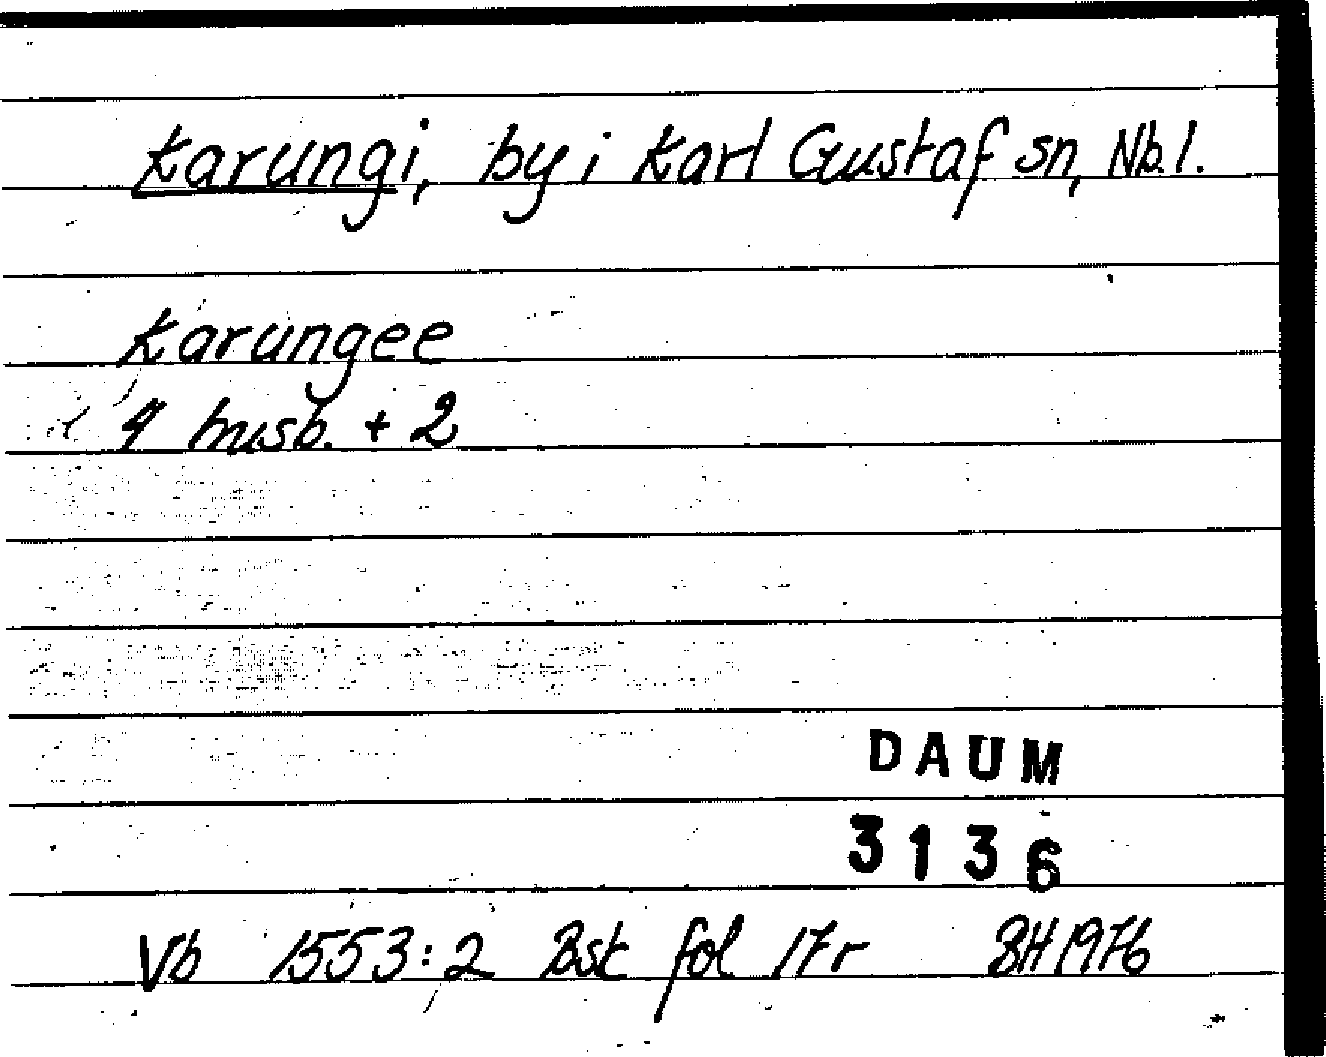 Karungi, by i Karl Gustaf sn, Nb.l.
Karungee
4 husb. + 2
DAUM
3136
Vb 1553:2 Bsk fol 17r BH1976